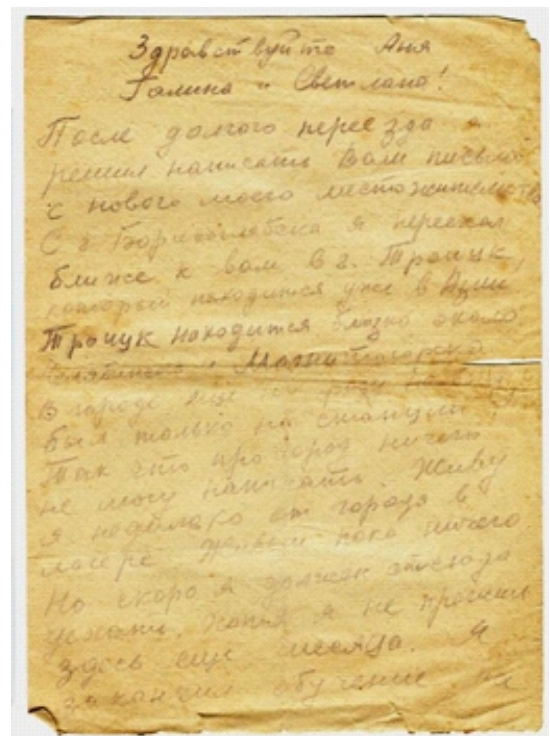 Здравствуйте Аня
Галина и Светлана!
После долгого переезда я
решил написать Вам письмо
с нового моего местожительства
С г. Борисоглебска я переехал
ближе к вам в г. Троицк,
который находится уже в Азии
Троицк находится близко около
Челябинска и Магнитогорска
В городе еще ни разу не был,
был только на станции,
Так что про город ничего
не могу написать. Живу
я недалеко от города в
лагере. Живем пока ничего.
Но скоро я должен отсюда
уехать. Хотя я не прожил
здесь еще месяца. Я
закончил обучение на